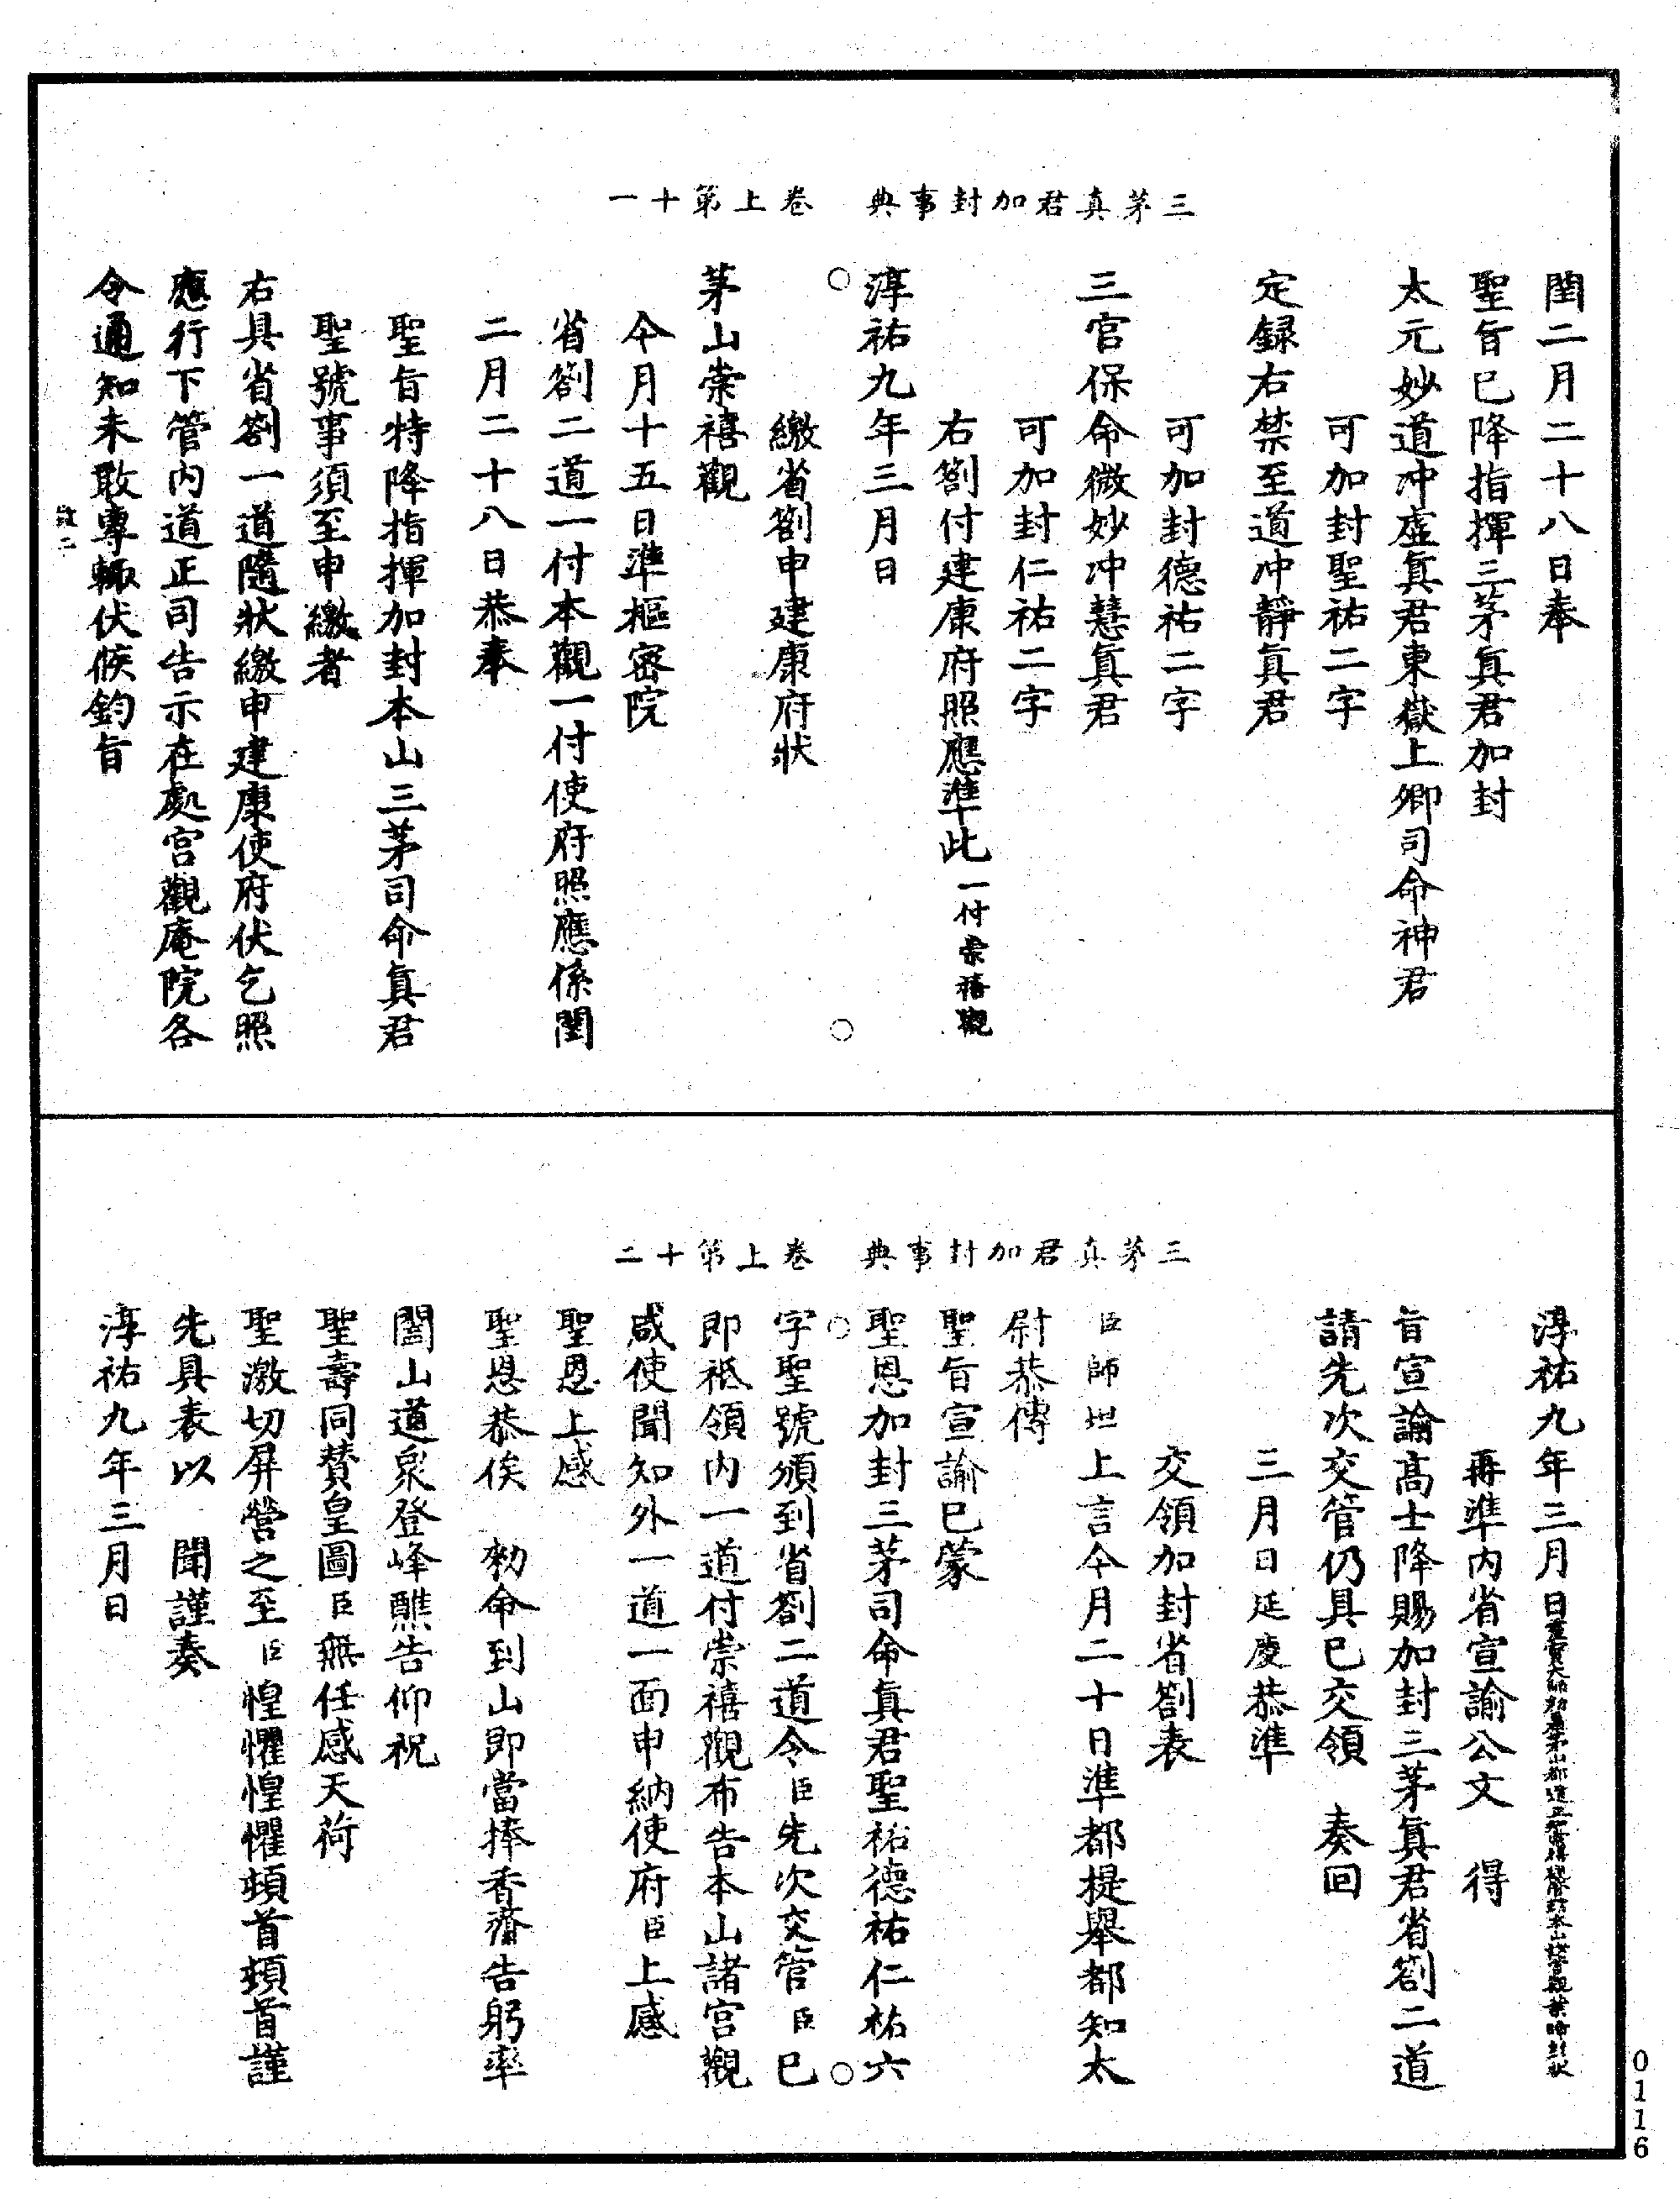 三茅真君加封事典　卷上第十一
閏二月二十八日奉
聖旨已降指揮三茅真君加封
太元妙道冲虛真君東嶽上卿司命神君
可加封聖祐二字
定録右禁至道冲靜真君
可加封德祐二字
三官保命微妙冲慧真君
可加封仁祐二字
右劄付建康府照應準此一付崇禧觀
淳祐九年三月日
繳省劄申建康府狀
茅山崇禧觀
今月十五日準樞密院
省劄二道一付本觀一付使府照應係閏
二月二十八日恭奉
聖旨特降指揮加封本山三茅司命真君
聖號事須至申繳者
右具省劄一道隨狀繳申建康使府伏乞照
應行下管内道正司告示在處宮觀庵院各
令通知未敢專輙伏候鈞旨
三茅真君加封事典　卷上第十二
淳祐九年三月日
再準内省宣諭公文　得
旨宣諭高士降賜加封三茅真君省劄二道
請先次交管仍具已交領　奏回
三月日延慶恭準
交領加封省劄表
臣師坦上言今月二十日準都提舉都知太
尉恭傳
聖旨宣諭已蒙
聖恩加封三茅司命真君聖祐德祐仁祐六
字聖號頒到省劄二道令臣先次交管臣已
即祗領内一道付崇禧觀布告本山諸宮觀
咸使聞知外一道一面申納使府臣上感
聖恩上感
聖恩恭俟　勑命到山即當捧香齋告躬率
闔山道衆登峰醮告仰祝
聖壽同贊皇圖臣無任感天荷
聖激切屏營之至臣惶懼惶懼頓首頓首謹
先具表以　聞謹奏
淳祐九年三月日
0116